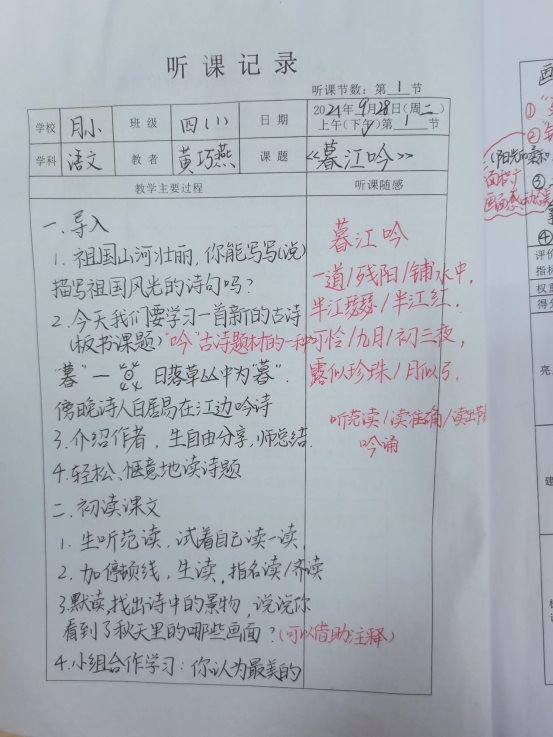 听课记录
听课节数：第 1 节
学校 月小 班级 四(1) 日期 2021年9月28日(周二)
上午(下午)第 1 节
学科 语文 教者 黄巧燕 课题 《暮江吟》
教学主要过程 听课随感
一.导入
1.祖国山河壮丽,你能写写(说)
描写祖国风光的诗句吗?
2.今天我们要学习一首新的古诗
(板书课题)"吟"古诗题材的一种
"暮"— 日落草丛中为"暮".
傍晚诗人白居易在江边吟诗
3.介绍作者,生自由分享,师总结.
4.轻松、惬意地读诗题
二.初读课文
1.生听范读,试着自己读一读,
2.加停顿线,生读,指名读/齐读
3.默读,找出诗中的景物,说说你
看到了秋天里的哪些画面?(可以借助注释)
4.小组合作学习:你认为最美的
暮江吟
一道/残阳/铺水中,
半江瑟瑟/半江红.
可怜/九月/初三夜,
露似珍珠/月似弓.
听范读/读准确/读出节
吟诵
画
①
②
(阳光
③
④
评价
指标
权重
得分
亮
建